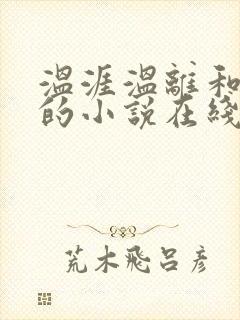 温涯温離和
的小说在綫
荒木飛呂彦